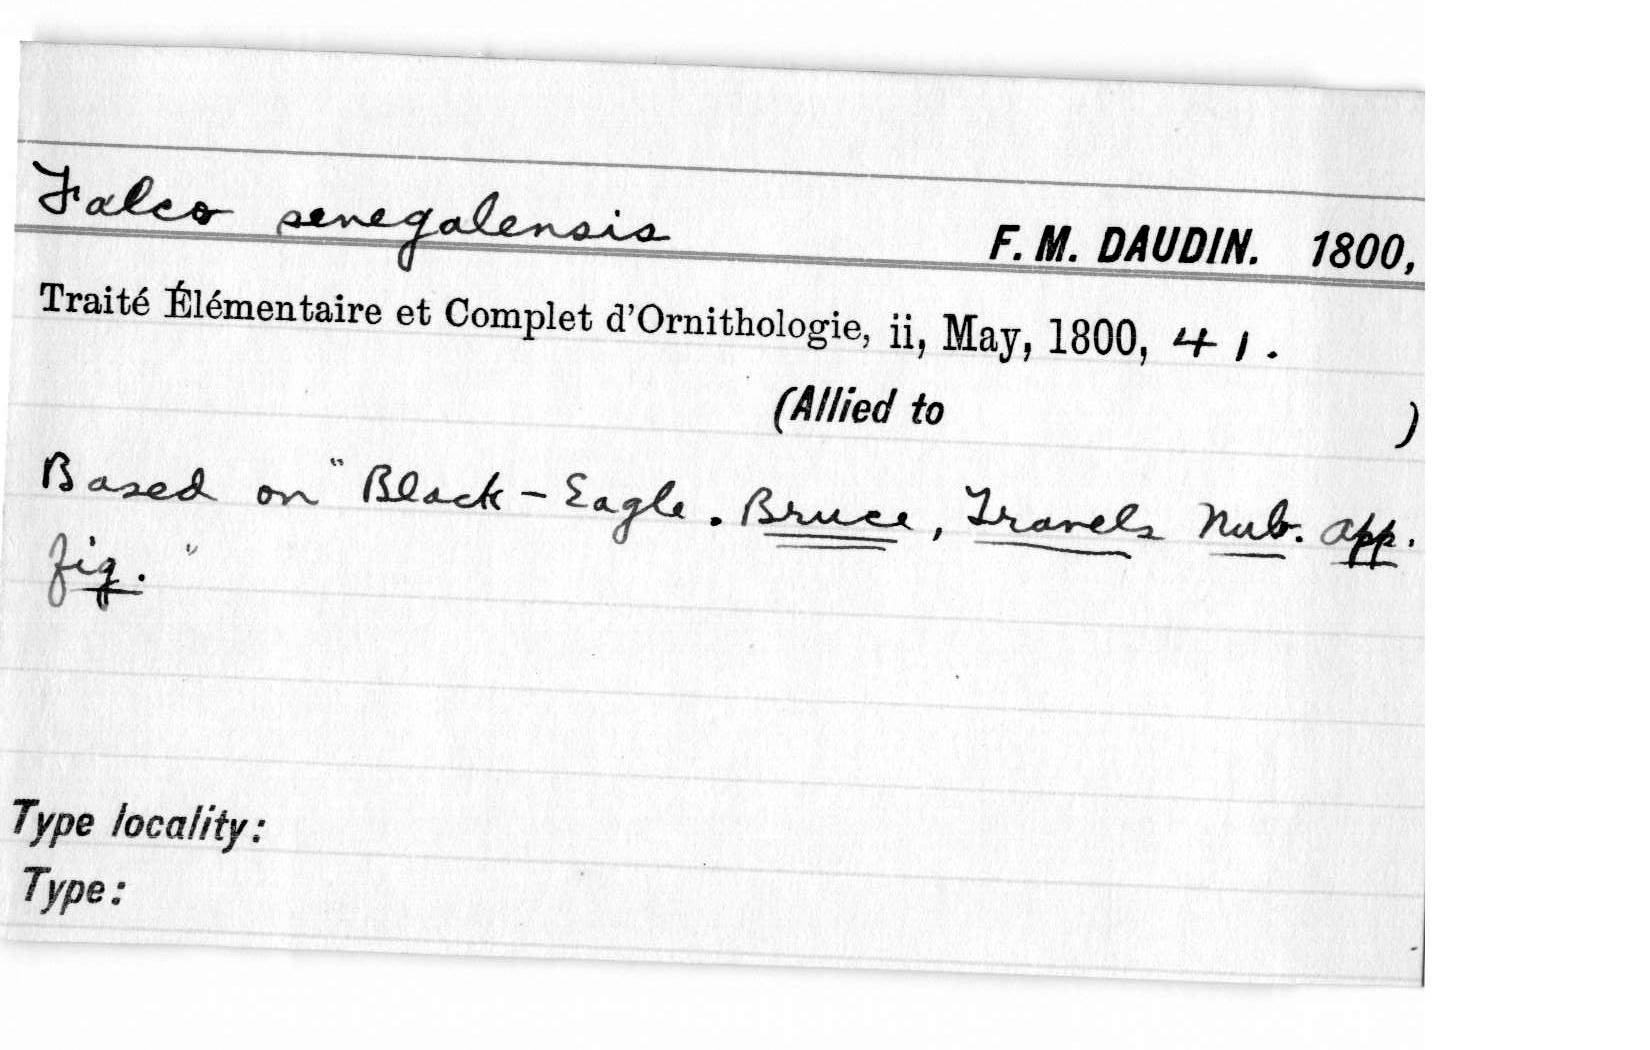 Falco senegalensis F. M. DAUDIN. 1800,
Traité Élémentaire et Complet d'Ornithologie, ii, May, 1800, 41.
(Allied to )
Based on "Black-Eagle. Bruce, Travels Nub. app.
fig."
Type locality:
Type: